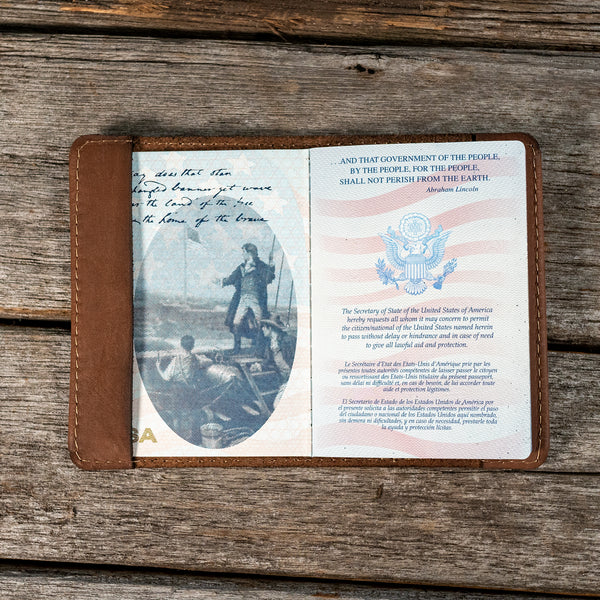 does that star
banner yet wave
the land of the free
the home of the brave
SA
. . . AND THAT GOVERNMENT OF THE PEOPLE,
BY THE PEOPLE, FOR THE PEOPLE,
SHALL NOT PERISH FROM THE EARTH.
Abraham Lincoln
The Secretary of State of the United States of America
hereby requests all whom it may concern to permit
the citizen/national of the United States named herein
to pass without delay or hindrance and in case of need
to give all lawful aid and protection.
Le Secrétaire d'Etat des Etats-Unis d'Amérique prie par les
présentes toutes autorités compétentes de laisser passer le citoyen
ou ressortissant des Etats-Unis titulaire du présent passeport,
sans délai ni difficulté et, en cas de besoin, de lui accorder toute
aide et protection légitimes.
El Secretario de Estado de los Estados Unidos de América por
el presente solicita a las autoridades competentes permitir el paso
del ciudadano o nacional de los Estados Unidos aquí nombrado,
sin demora ni dificultades, y en caso de necesidad, prestarle toda
la ayuda y protección lícitas.